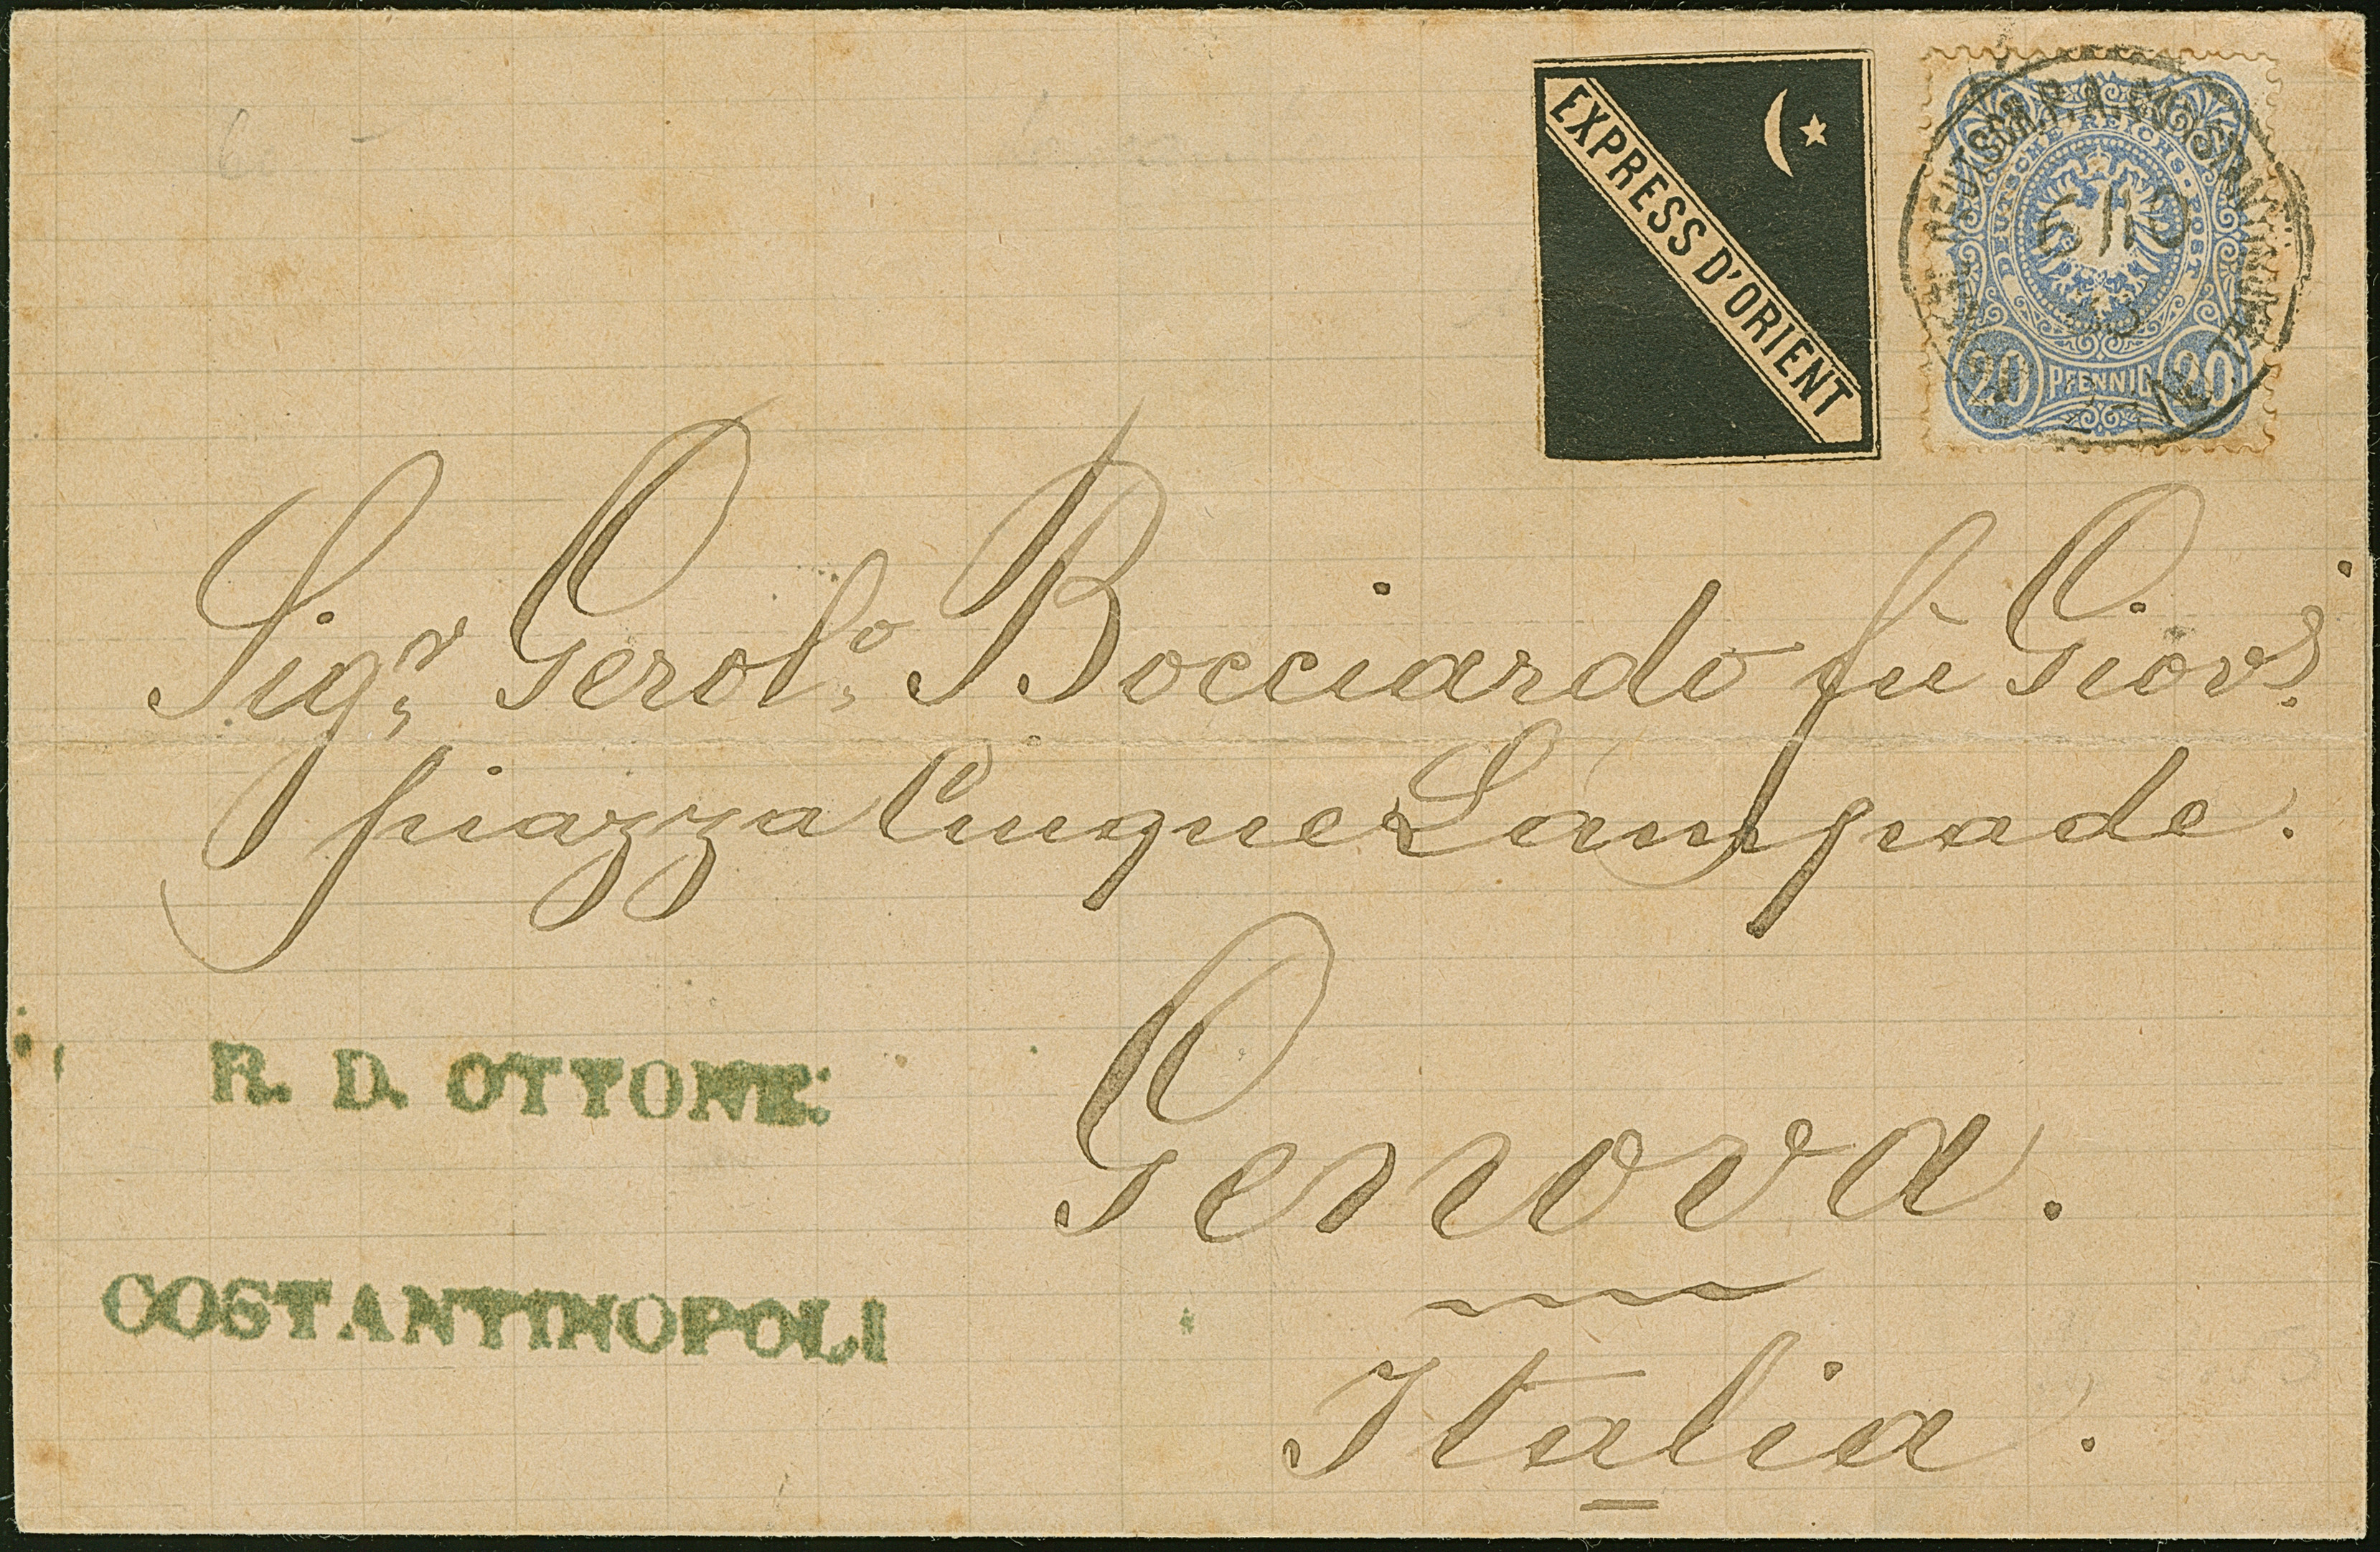 EXPRESS D'ORIENT
DEUTSCHE REICHS-POST
20 PFENNIG 20
6 10
Sigr. Gerolo. Bocciardo fù Giov.
piazza Cinque Lampade.
Genova.
Italia.
R. D. OTTONE.
COSTANTINOPOLI